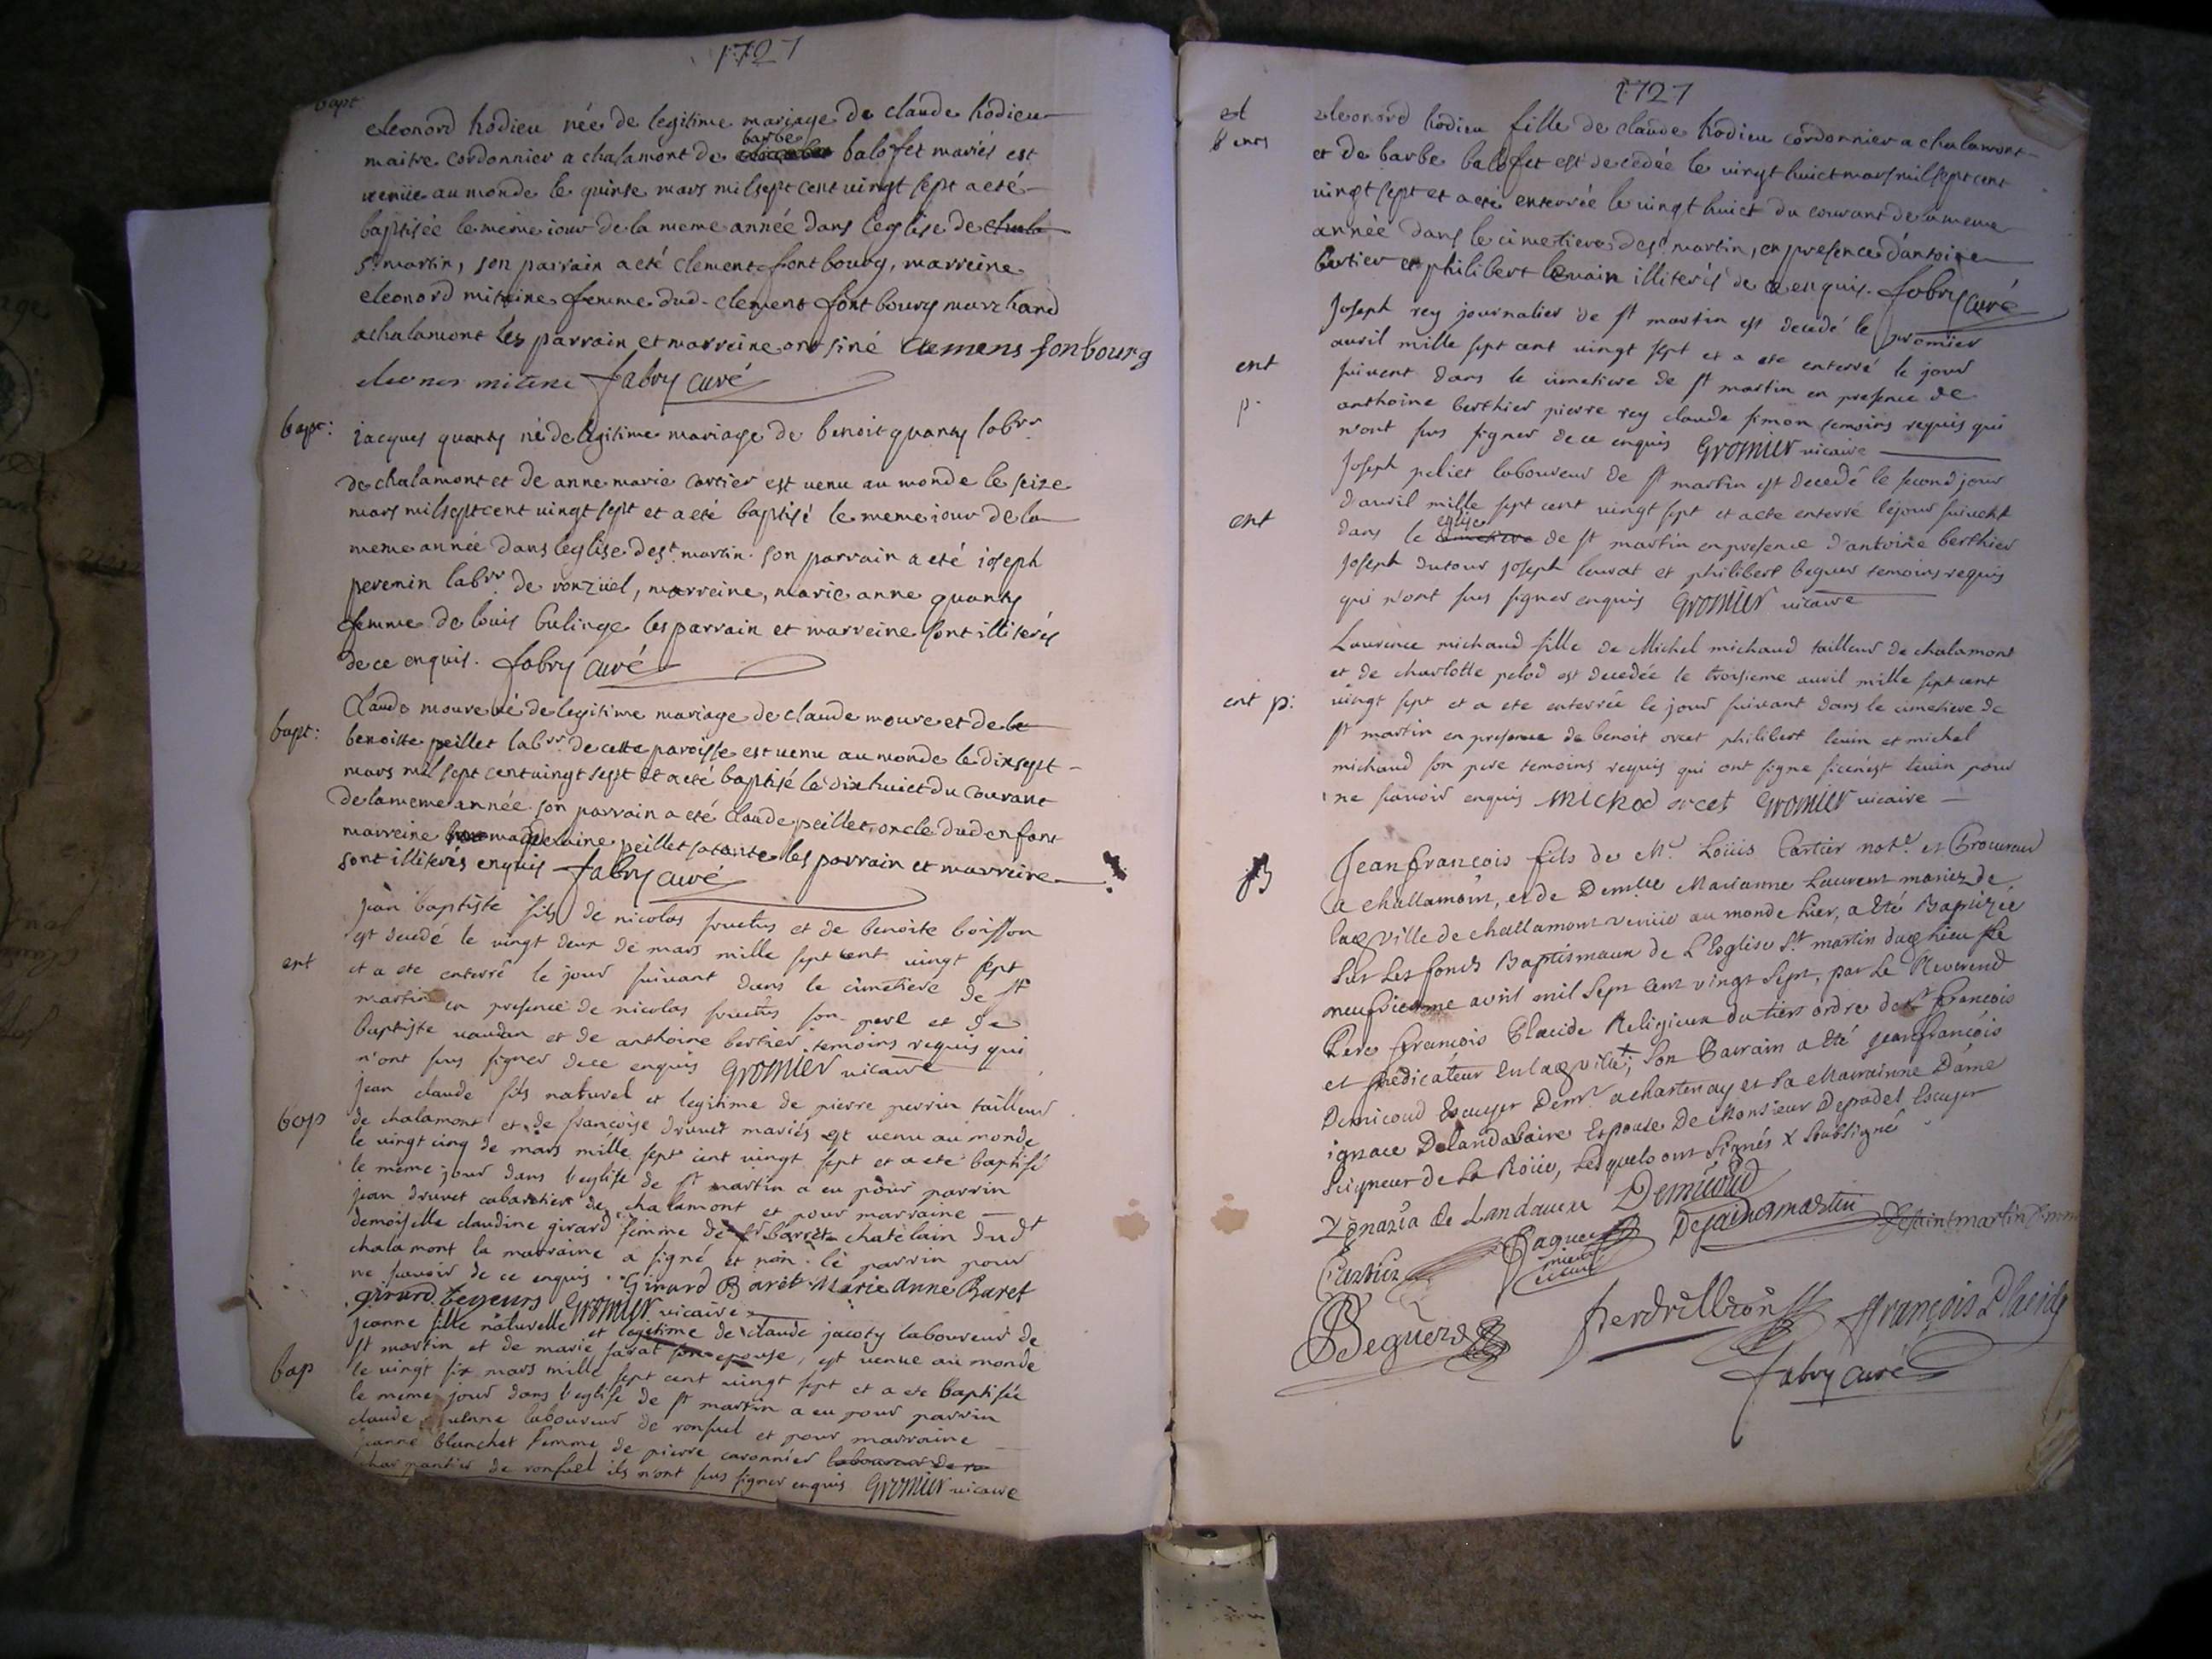 1727
bapt
eleonord hodieu née de legitime mariage de claude hodieu
barbe
maitre cordonnier a chalamont de balofet mariés est
venüe au monde le quinse mars mil sept cent vingt sept a eté
baptisée le meme iour de la meme année dans l'eglise de chala
st martin, son parrain a eté clement font bourg, marreine
eleonord mitaine femme dud. clement font bourg marchand
a chalamont les parrain et marreine ont siné clemens fonbourg
eleonor mitene fabry curé
bapt:
iacques quanty né de legitime mariage de benoit quanty labr
de chalamont et de anne marie cartier est venu au monde le seize
mars mil sept cent vingt sept et a eté baptisé le meme iour de la
meme année dans l'eglise de st martin. son parrain a eté ioseph
peremin labr de ronzüel, marreine, marie anne quanty
femme de louis bulinge les parrain et marreine sont illiterés
de ce enquis. fabry curé
bapt:
Claude moure né de legitime mariage de claude moure et de la
benoitte peillet labr de cette paroisse est venu au monde le dix sept
mars mil sept cent vingt sept et a eté baptisé le dix huict du courant
de la meme année son parrain a eté claude peillet, oncle dud enfant
marreine madelaine peillet sa tante les parrain et marreine
sont illiterés enquis fabry curé
ent
jean baptiste fils de nicolas fructus et de benoite boisson
est decedé le vingt deux de mars mille sept cent vingt sept
et a ete enterré le jour suivant dans le cimetiere de st
martin en presence de nicolas fructus son pere et de
baptiste vaudan et de anthoine bertier temoins requis qui
n'ont sus signer de ce enquis Gromier vicaire
bap
jean claude fils naturel et legitime de pierre perrin tailleur
de chalamont et de françoise druvet mariés est venu au monde
le vingt cinq de mars mille sept cent vingt sept et a eté baptisé
le meme jour dans l'eglise de st martin a eu pour parrin
jean druvet cabaretier de chalamont et pour marraine
demoiselle claudine girard femme de sr barret chatelain dudt
chalamont la marraine a signé et non le parrin pour
ne savoir de ce enquis. Girard Barêt Marie Anne Baret
girard Gromier vicaire
bap
jeanne fille naturelle et legitime de claude jacoty laboureur de
st martin et de marie farat son epouse, est venue au monde
le vingt six mars mille sept cent vingt sept et a ete baptisée
le meme jour dans l'eglise de st martin a eu pour parrin
claude laboureur de ronsuel et pour marraine
jeanne blanchet femme de pierre caronnier laboureur de
charpantier de ronsuel ils n'ont sus signer enquis Gromier vicaire
1727
eleonord hodieu fille de claude hodieu cordonnier a chalamont
et de barbe balofet est decedée le vingt huict mars mil sept cent
vingt sept et a eté enterrée le vingt huict du courant de la meme
année dans le cimetiere de st martin, en presence d'antoine
bertier et philibert levrain illiterés de ce enquis. fabry curé
ent
p.
Joseph rey journalier de st martin est decedé le premier
avril mille sept cent vingt sept et a ete enterré le jour
suivent dans le cimetiere de st martin en presence de
anthoine berthier pierre rey claude simon temoins requis qui
n'ont sus signer de ce enquis Gromier vicaire
ent
Joseph peliet laboureur de st martin est decedé le second jour
d'avril mille sept cent vingt sept et a ete enterré le jour suivent
eglise
dans le cimetiere de st martin en presence d'antoine berthier
Joseph dutour joseph leurat et philibert beguer temoins requis
qui n'ont sus signer enquis Gromier vicaire
ent p:
Laurence michaud fille de Michel michaud tailleur de chalamont
et de charlotte pelod est decedée le troisieme avril mille sept cent
vingt sept et a ete enterrée le jour suivant dans le cimetiere de
st martin en presence de benoit orcet philibert levin et michel
michaud son pere temoins requis qui ont signe si ce n'est levin pour
ne savoir enquis Michod orcet Gromier vicaire
B
Jean françois fils de Mr. Loüis Cartier notr. et Procureur
a challamont, et de Demlle Marianne Laurent mariez de
lad ville de challamont venüe au monde hier, a été Baptizée
sur les fonds Baptismaux de L'Eglise St martin dud lieu le
neufvieme avril mil sept cent vingt sept, par Le Reverend
Pere françois Placide Religieux du tiers ordre de St françois
et predicateur en lad ville; son Parrain a été jean françois
Demicoud Escuyer Demt a chastenay et sa Marrainne Dame
ignace Delandavaire Epouse De Monsieur Depradel Escuyer
Seigneur de La Roüe, Lesquels ont signés X soussigné
Ignazia de Landauere Demicoud
Cartier Desaintmartin
Beguerd Perdrillion françois Placide
fabry curé